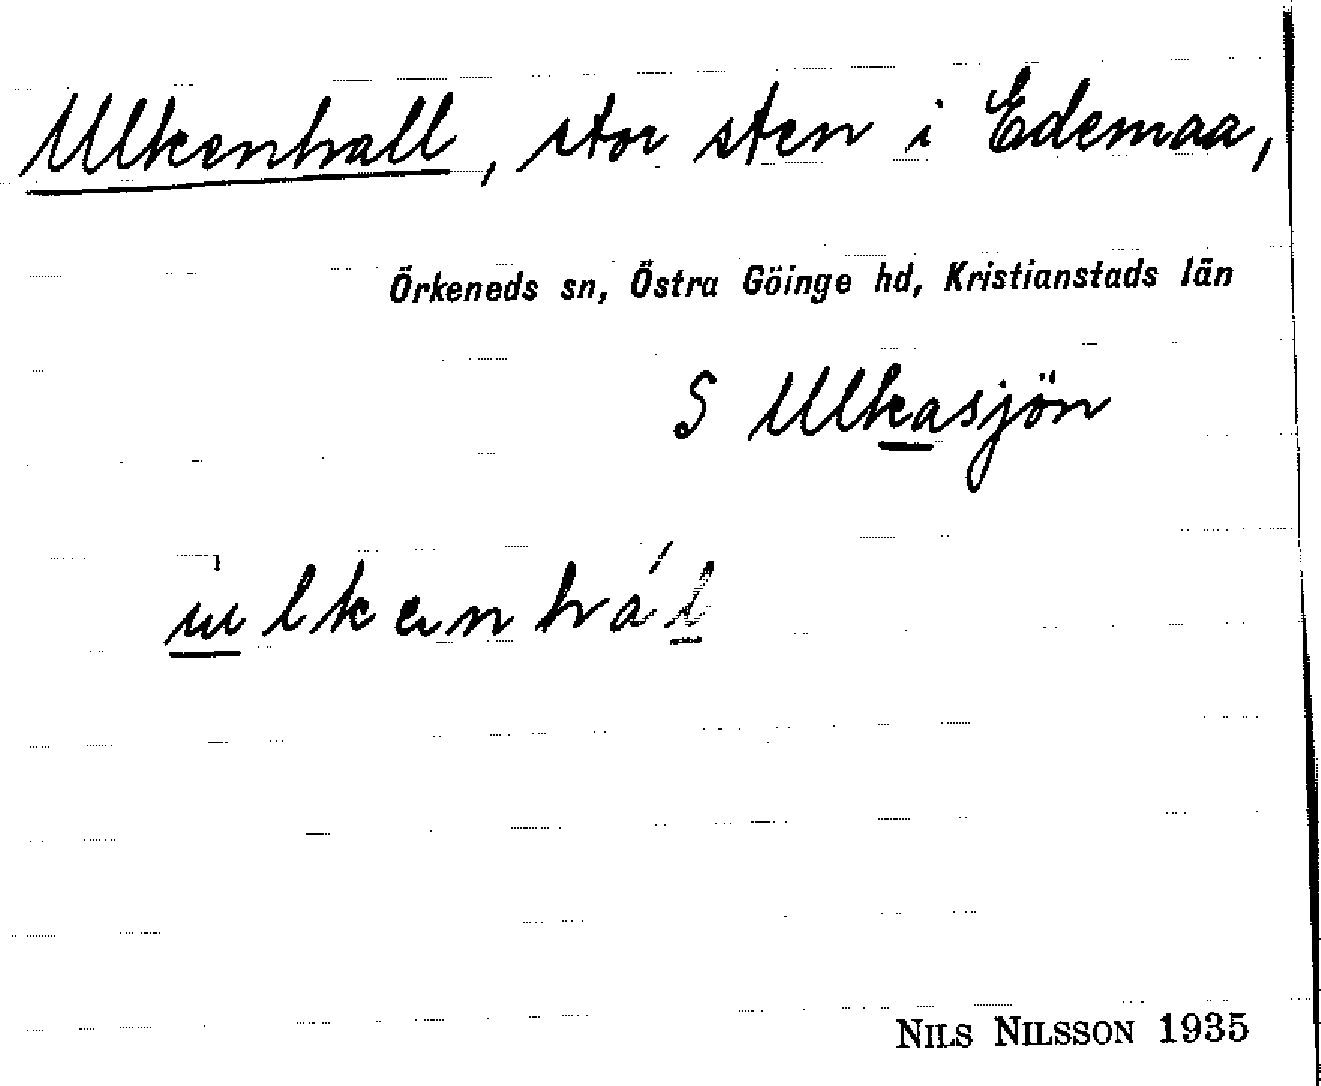 Ulkenhall, stor sten i Edemaa,
Örkeneds sn, Östra Göinge hd, Kristianstads län
S Ulkasjön
ulkenhál
NILS NILSSON 1935